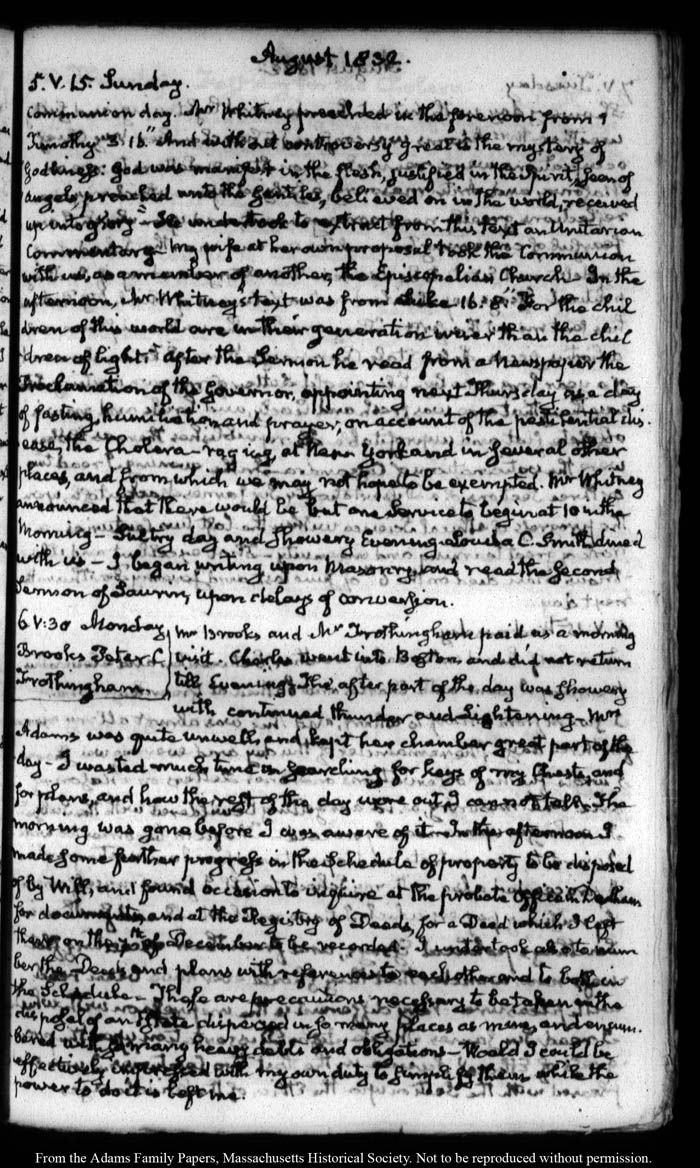 August 1832.
5. V. 15. Sunday.
Communion day. Mr Whitney preached in the forenoon from 1
Timothy 3. 16. "And without controversy great is the mystery of
Godliness: God was manifest in the flesh, justified in the Spirit, seen of
angels, preached unto the Gentiles, believed on in the world, received
up into glory" He undertook to extract from this text an Unitarian
Commentary – My wife at her own proposal took the Communion
with us, as a member of another, the Episcopalian Church – In the
afternoon, Mr Whitney's text was from Luke 16. 8. "For the chil
dren of this world are in their generation wiser than the chil
dren of light." After the Sermon he read from a Newspaper the
Proclamation of the Governor, appointing next Thursday as a day
of fasting, humiliation and prayer, on account of the pestilential dis.
ease, the Cholera – raging, at New York and in several other
places, and from which we may not hope to be exempted. Mr Whitney
announced that there would be but one Service to begin at 10 in the
Morning – Sultry day and showery Evening – Louisa C. Smith dined
with us – I began writing upon Masonry, and read the second
Sermon of Saurin, upon delays of conversion.
6 V: 30 Monday
Brooks Peter C.
Frothingham.
Mr Brooks and Mr Frothingham paid us a morning
visit. Charles went into Boston, and did not return
till Evening. The after part of the day was showery
with continued thunder and Lightening – Mrs
Adams was quite unwell, and kept her chamber great part of the
day – I wasted much time in searching for keys of my Chests, and
for plans, and how the rest of the day wore out, I cannot tell. The
morning was gone before I was aware of it – In the afternoon I
made some further progress in the Schedule of property to be disposed
of by Will, and found occasion to inquire at the probate Office in Dedham
for documents, and at the Registry of Deeds, for a Deed which I left
there on the of December to be recorded. I undertook also to num
ber the Deeds and plans with reference to each other and to both in
the Schedule – These are precautions necessary to be taken in the
disposal of an Estate dispersed in so many places as mine, and encum.
bered with so many heavy debts and obligations – Would I could be
effectively impressed with my own duty to simplify them while the
power to do it is left me.
From the Adams Family Papers, Massachusetts Historical Society. Not to be reproduced without permission.